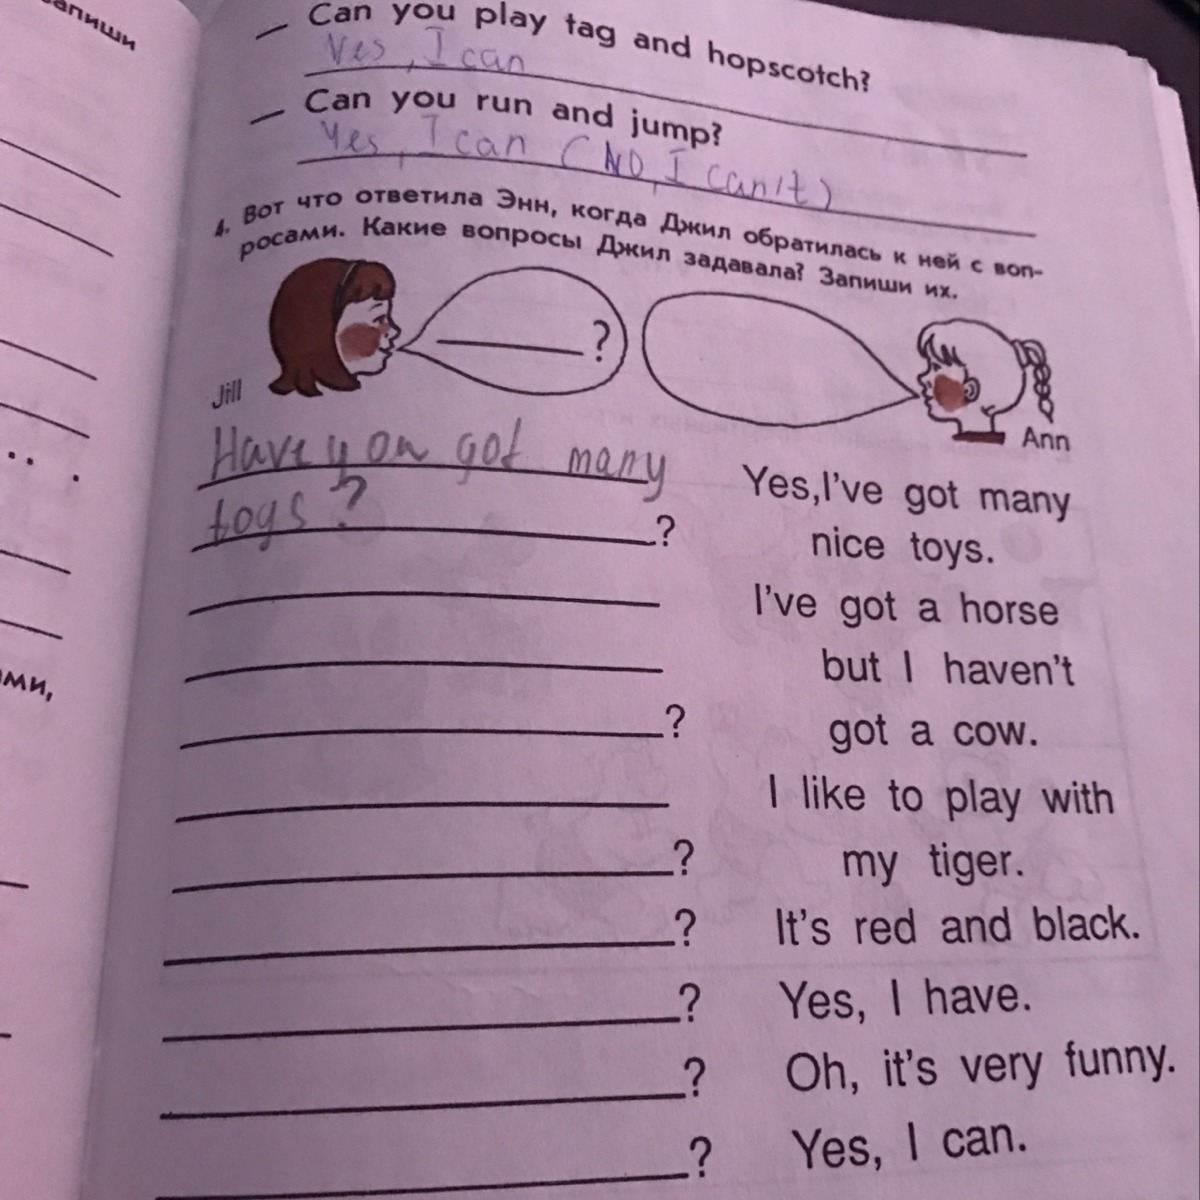 запиши
Can you play tag and hopscotch?
Yes, I can
Can you run and jump?
Yes, I can (NO, I can't)
4. Вот что ответила Энн, когда Джил обратилась к ней с воп-
росами. Какие вопросы Джил задавала? Запиши их.
?
Jill
Ann
Have you got many
toys? ?
Yes,I've got many
nice toys.
I've got a horse
but I haven't
? got a cow.
ми,
I like to play with
? my tiger.
? It's red and black.
? Yes, I have.
? Oh, it's very funny.
? Yes, I can.